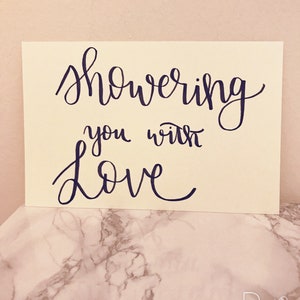 showering
you with
Love